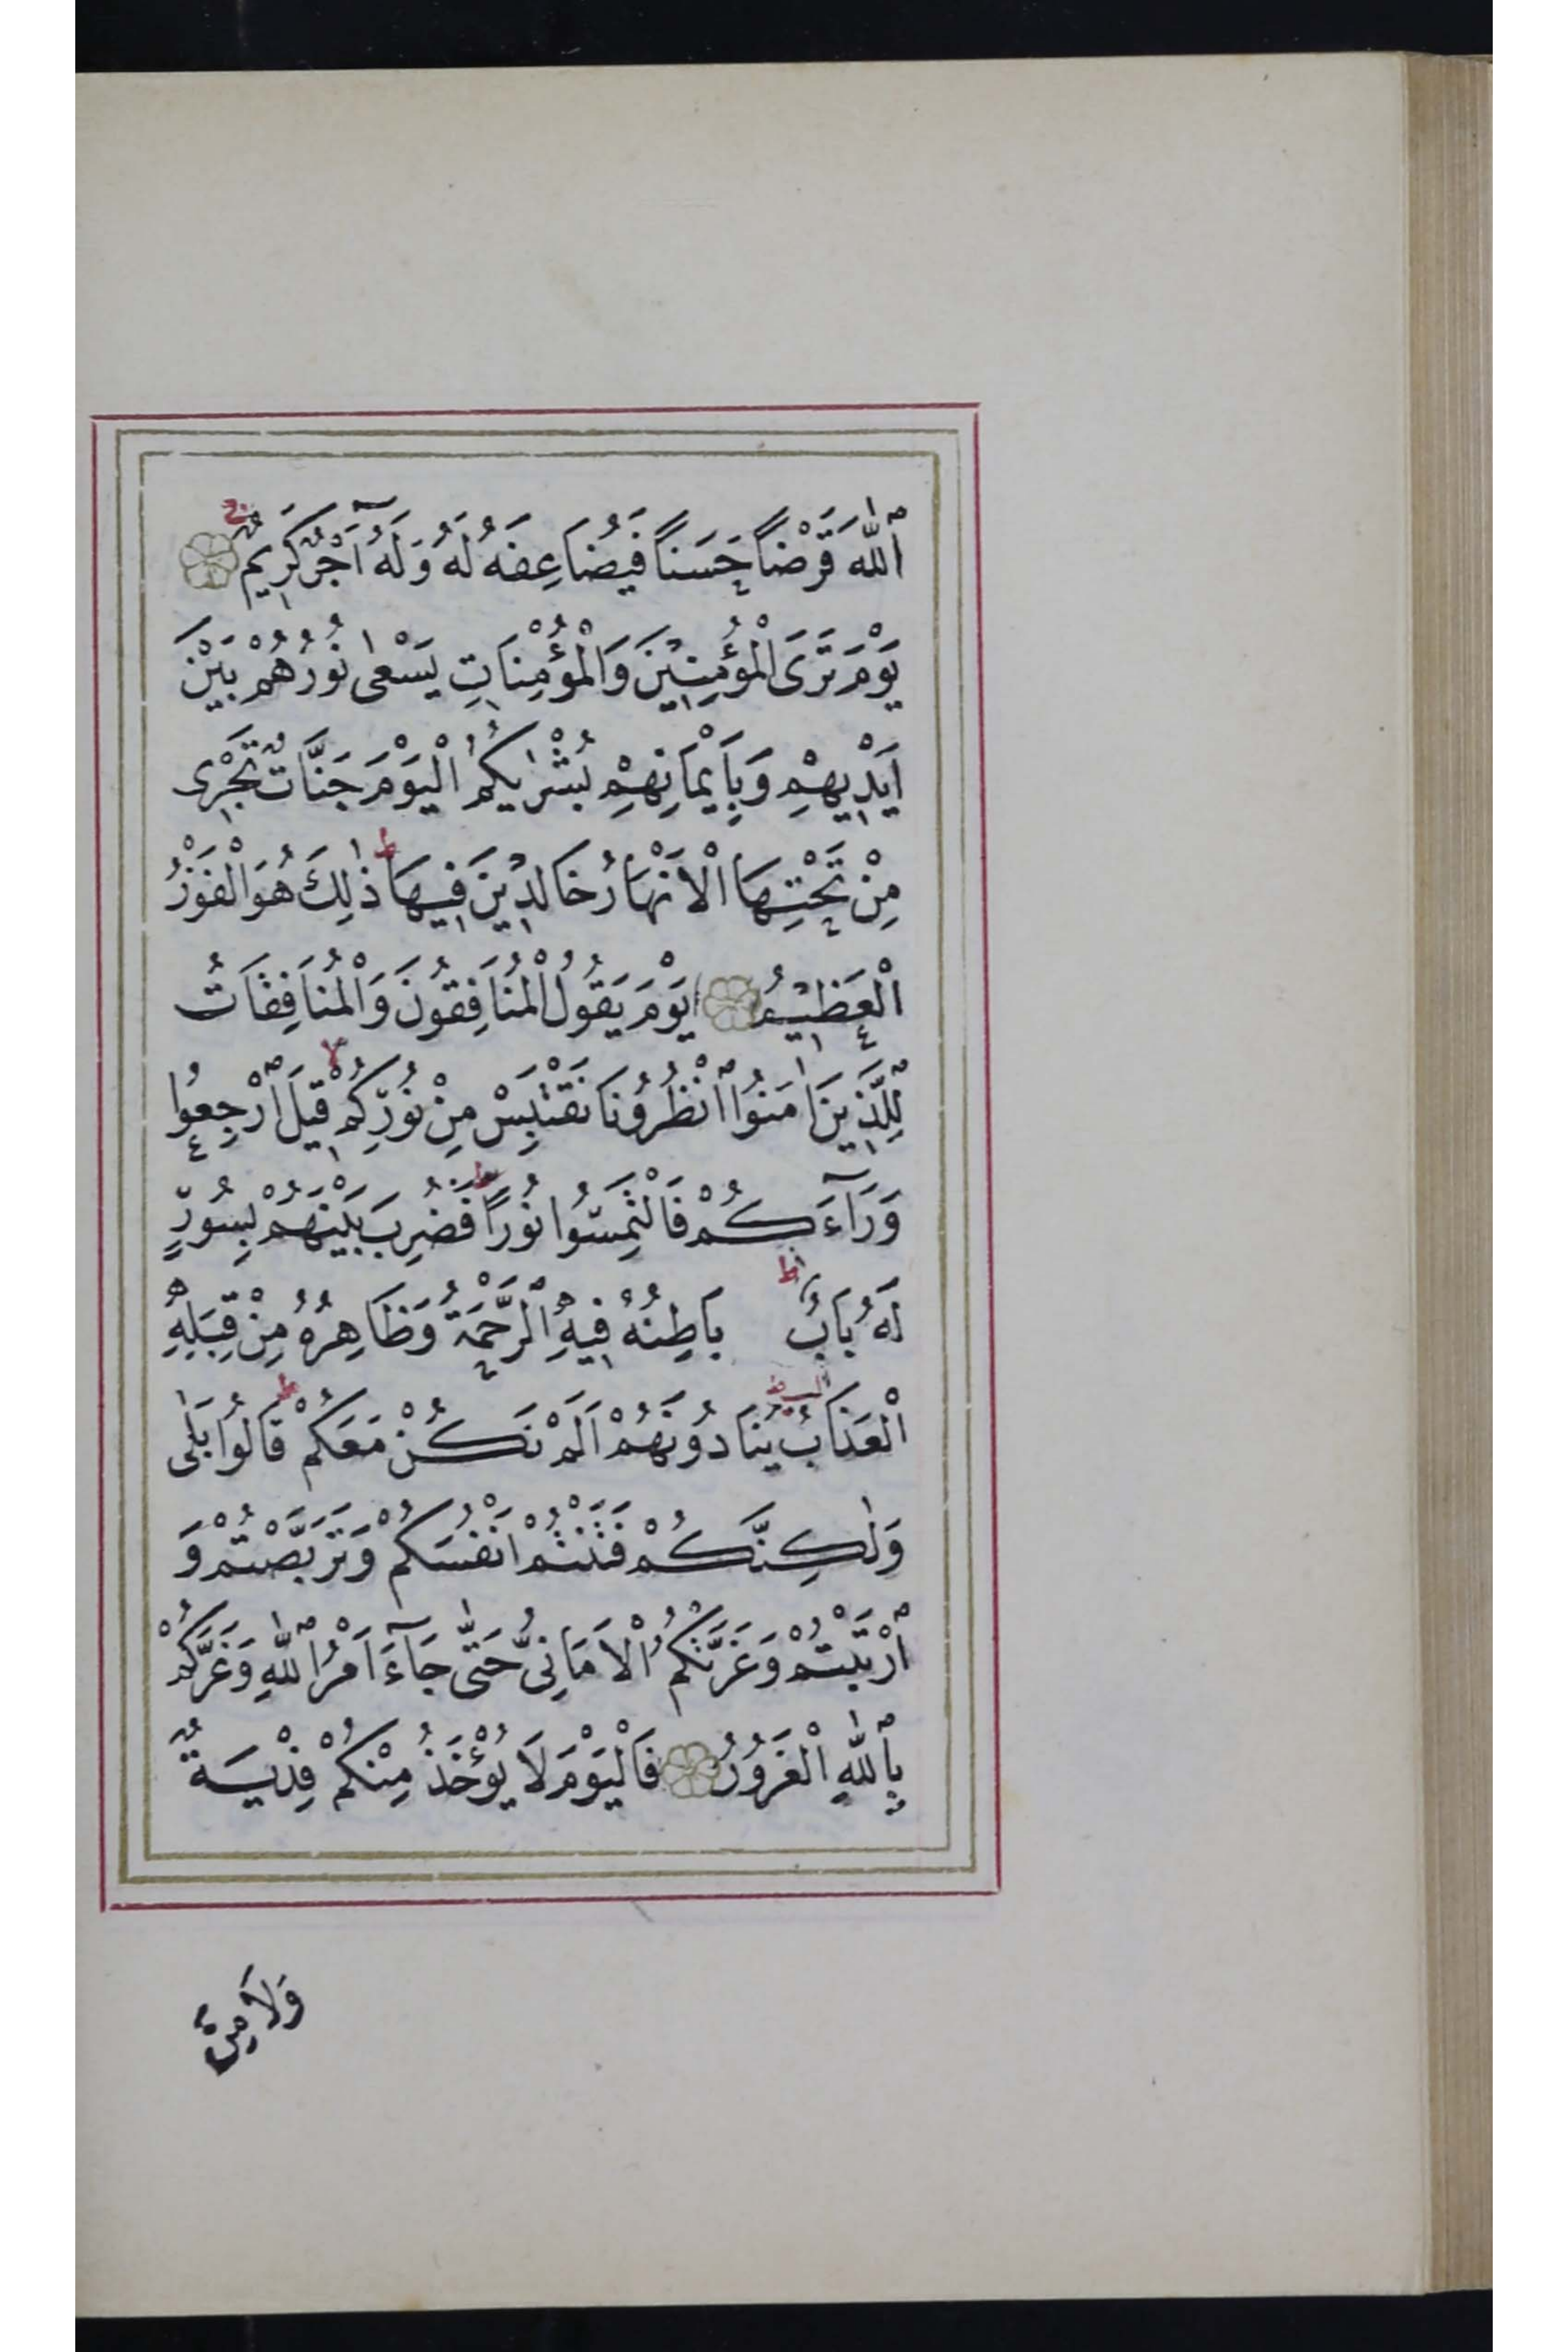 ٱللّٰهَ قَرْضاً حَسَناً فَيُضَاعِفَهُ لَهُ وَلَهُٓ اَجْرٌ كَرِيمٌ ج
يَوْمَ تَرَى الْمُؤْمِنِينَ وَالْمُؤْمِنَاتِ يَسْعٰى نُورُهُمْ بَيْنَ
اَيْدِيهِمْ وَبِاَيْمَانِهِمْ بُشْرٰيكُمُ الْيَوْمَ جَنَّاتٌ تَجْرِى
مِنْ تَحْتِهَا الْاَنْهَارُ خَالِدِينَ فِيهَا ط ذٰلِكَ هُوَ الْفَوْزُ
الْعَظِيمُ يَوْمَ يَقُولُ الْمُنَافِقُونَ وَالْمُنَافِقَاتُ
لِلَّذِينَ اٰمَنُوا ٱنْظُرُونَا نَقْتَبِسْ مِنْ نُورِكُمْ لا قِيلَ ٱرْجِعُوا
وَرَآءَكُمْ فَالْتَمِسُوا نُوراً ط فَضُرِبَ بَيْنَهُمْ بِسُورٍ
لَهُ بَابٌ ط بَاطِنُهُ فِيهِ ٱلرَّحْمَةُ وَظَاهِرُهُ مِنْ قِبَلِهِ
الْعَذَابُ يُنَادُونَهُمْ اَلَمْ نَكُنْ مَعَكُمْ ط قَالُوا بَلٰى
وَلٰكِنَّكُمْ فَتَنْتُمْ اَنْفُسَكُمْ وَتَرَبَّصْتُمْ وَ
ٱرْتَبْتُمْ وَغَرَّتْكُمُ الْاَمَانِىُّ حَتّٰى جَآءَ اَمْرُ ٱللّٰهِ وَغَرَّكُمْ
بِٱللّٰهِ الْغَرُورُ فَالْيَوْمَ لَا يُؤْخَذُ مِنْكُمْ فِدْيَةٌ
وَلَا مِنَ